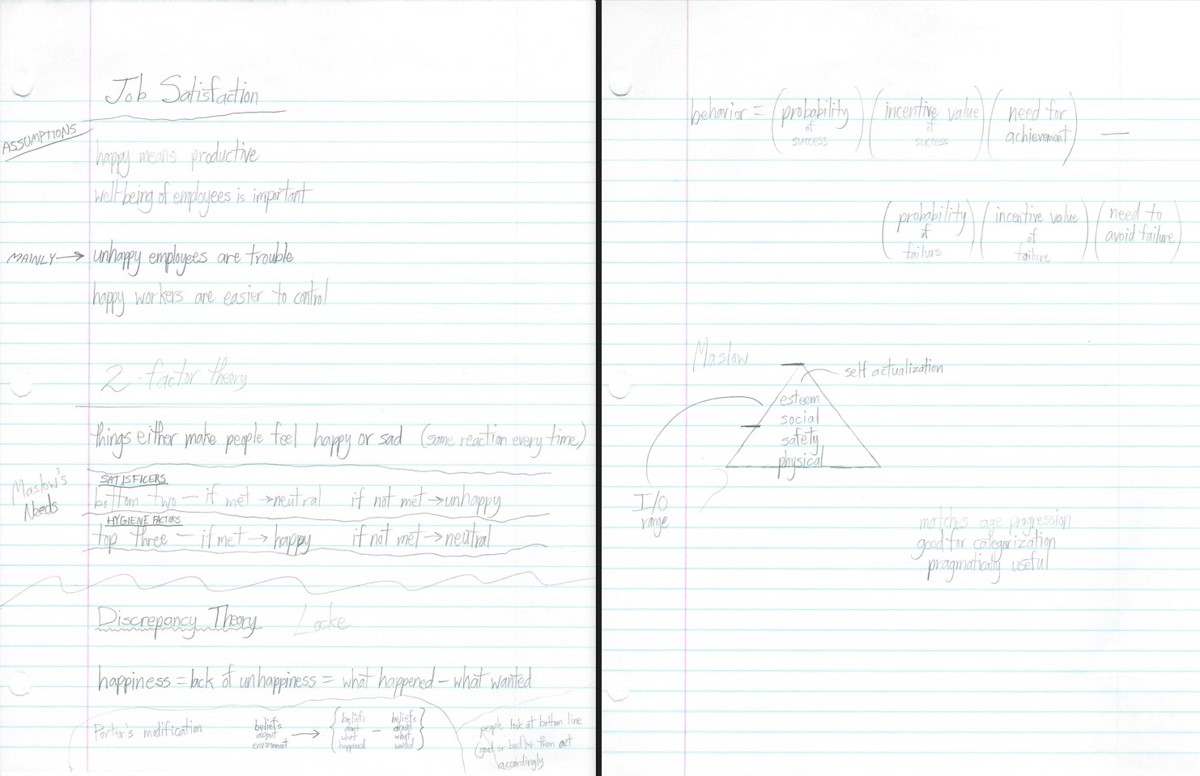 Job Satisfaction
ASSUMPTIONS
happy means productive
well-being of employees is important
MAINLY → unhappy employees are trouble
happy workers are easier to control
2-factor theory
things either make people feel happy or sad (same reaction every time)
Maslow's
Needs
SATISFICERS
bottom two — if met → neutral if not met → unhappy
HYGIENE FACTORS
top three — if met → happy if not met → neutral
Discrepancy Theory Locke
happiness = lack of unhappiness = what happened — what wanted
Porter's modification
beliefs
about
environment
→
{beliefs
about
what
happened
—
beliefs
about
what
wanted}
people look at bottom line
(good or bad) & then act
accordingly
behavior = (probability of success) (incentive value of success) (need for achievement) —
(probability of failure) (incentive value of failure) (need to avoid failure)
Maslow
self actualization
esteem
social
safety
physical
I/O
range
matches age progression
good for categorization
pragmatically useful